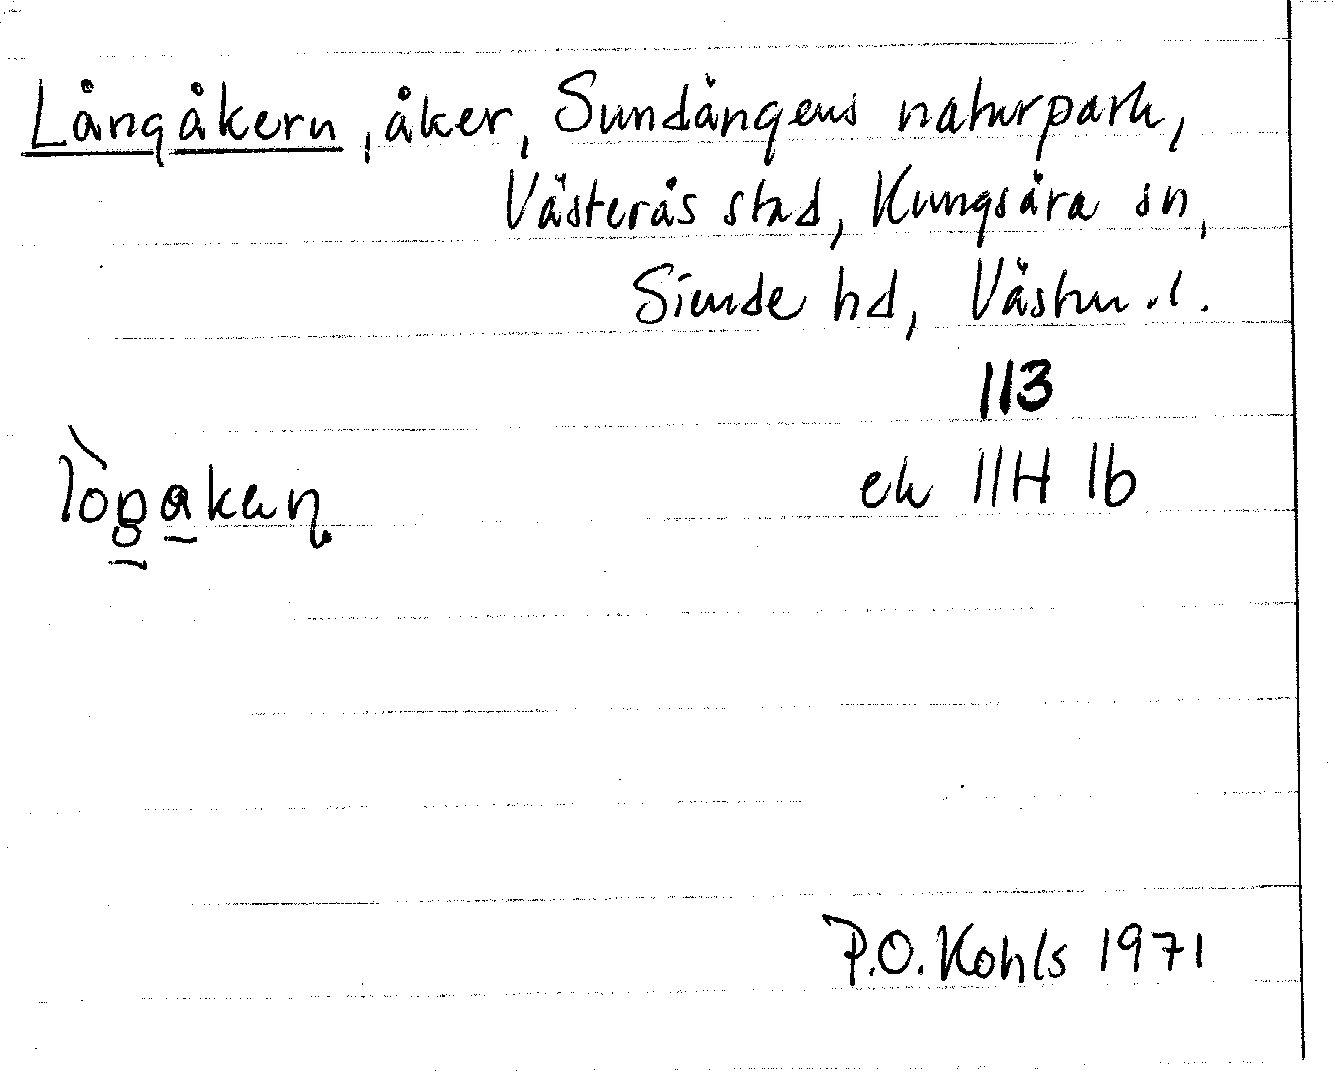 Långåkern, åker, Sundängens naturpark,
Västerås stad, Kungsåra sn,
Siende hd, Västm.l.
113
ek 11H 1b
P.O. Kohls 1971